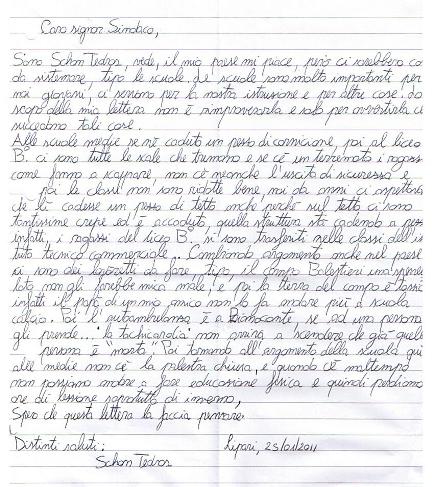 Caro signor Sindaco,
Sono Schon Tedros, vede, il mio paese mi piace, però ci sarebbero co
da sistemare, tipo le scuole. Le scuole sono molto importanti per
noi giovani, ci servono per la nostra istruzione e per altre cose. Lo
scopo della mia lettera non è rimproverarla e solo per avvertirla ch
succedono tali cose.
Alle scuole medie se nè caduto un pesso di cornicione, poi al liceo
B. ci sono tutte le scale che tremono e se c'è un terremoto i ragass
come fanno a scappare, non c'è neanche l'uscita di sicuressa e
poi le classi non sono ridotte bene noi da anni ci aspettava
che lì cadesse un pesso di tetto anche perchè sul tetto ci sono
tantissime crepe ed è accaduto, quella struttura sta cadendo a pess
infatti, i ragassi del liceo B. si sono trasferiti nelle classi dell'is
tuto tecnico commerciale.. Cambiando argomento anche nel paese
ci sono dei lavoretti da fare, tipo il campo
non gli farebbe mica male, e poi la terra del campo è tossic
infatti il papà di un mio amico non lo fa andare più a scuola
calcio. Poi l'autoambulansa è a Pianoconte, se ad una persona
gli prende... "la tachicardia" non arriva a scendere che già quell
persona è "morta". Poi tornando all'argomento della scuola qui
alle medie non c'è la palestra chiusa, e quando c'è maltempo
non possiamo andare a fare educassione fisica e quindi perdiamo
ore di lessione sopratutto di inverno,
Spero che questa lettera la faccia pensare.
Distinti saluti: Lipari, 25/01/2011
Schon Tedros